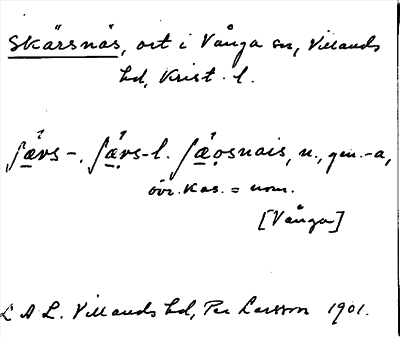 Skärsnäs, ort i Vånga sn, Villands
hd, Krist. l.
ʃæ̀rs-, ʃæ̀rs-l. ʃæ̀ọsnais, n., gen. -a,
övr. kas. = nom.
[Vånga]
L A L. Villands hd, Per Larsson 1901.